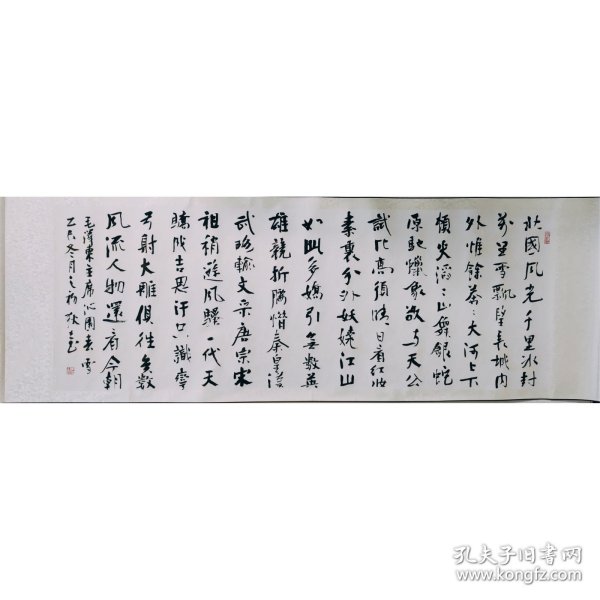 北國風光千里冰封
萬里雪飄望長城内
外惟餘莽々大河上下
頓失滔々山舞銀蛇
原馳蠟象欲与天公
試比高須晴日看紅妝
素裹分外妖嬈江山
如此多嬌引無數英
雄競折腰惜秦皇漢
武略輸文采唐宗宋
祖稍遜風騷一代天
驕成吉思汗只識彎
弓射大雕俱往矣數
風流人物還看今朝
毛澤東主席沁園春雪
乙亥冬月之初
孔夫子旧书网
www.kongfz.com